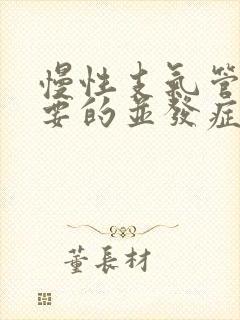 慢性支氣管
要的並發症
董長材